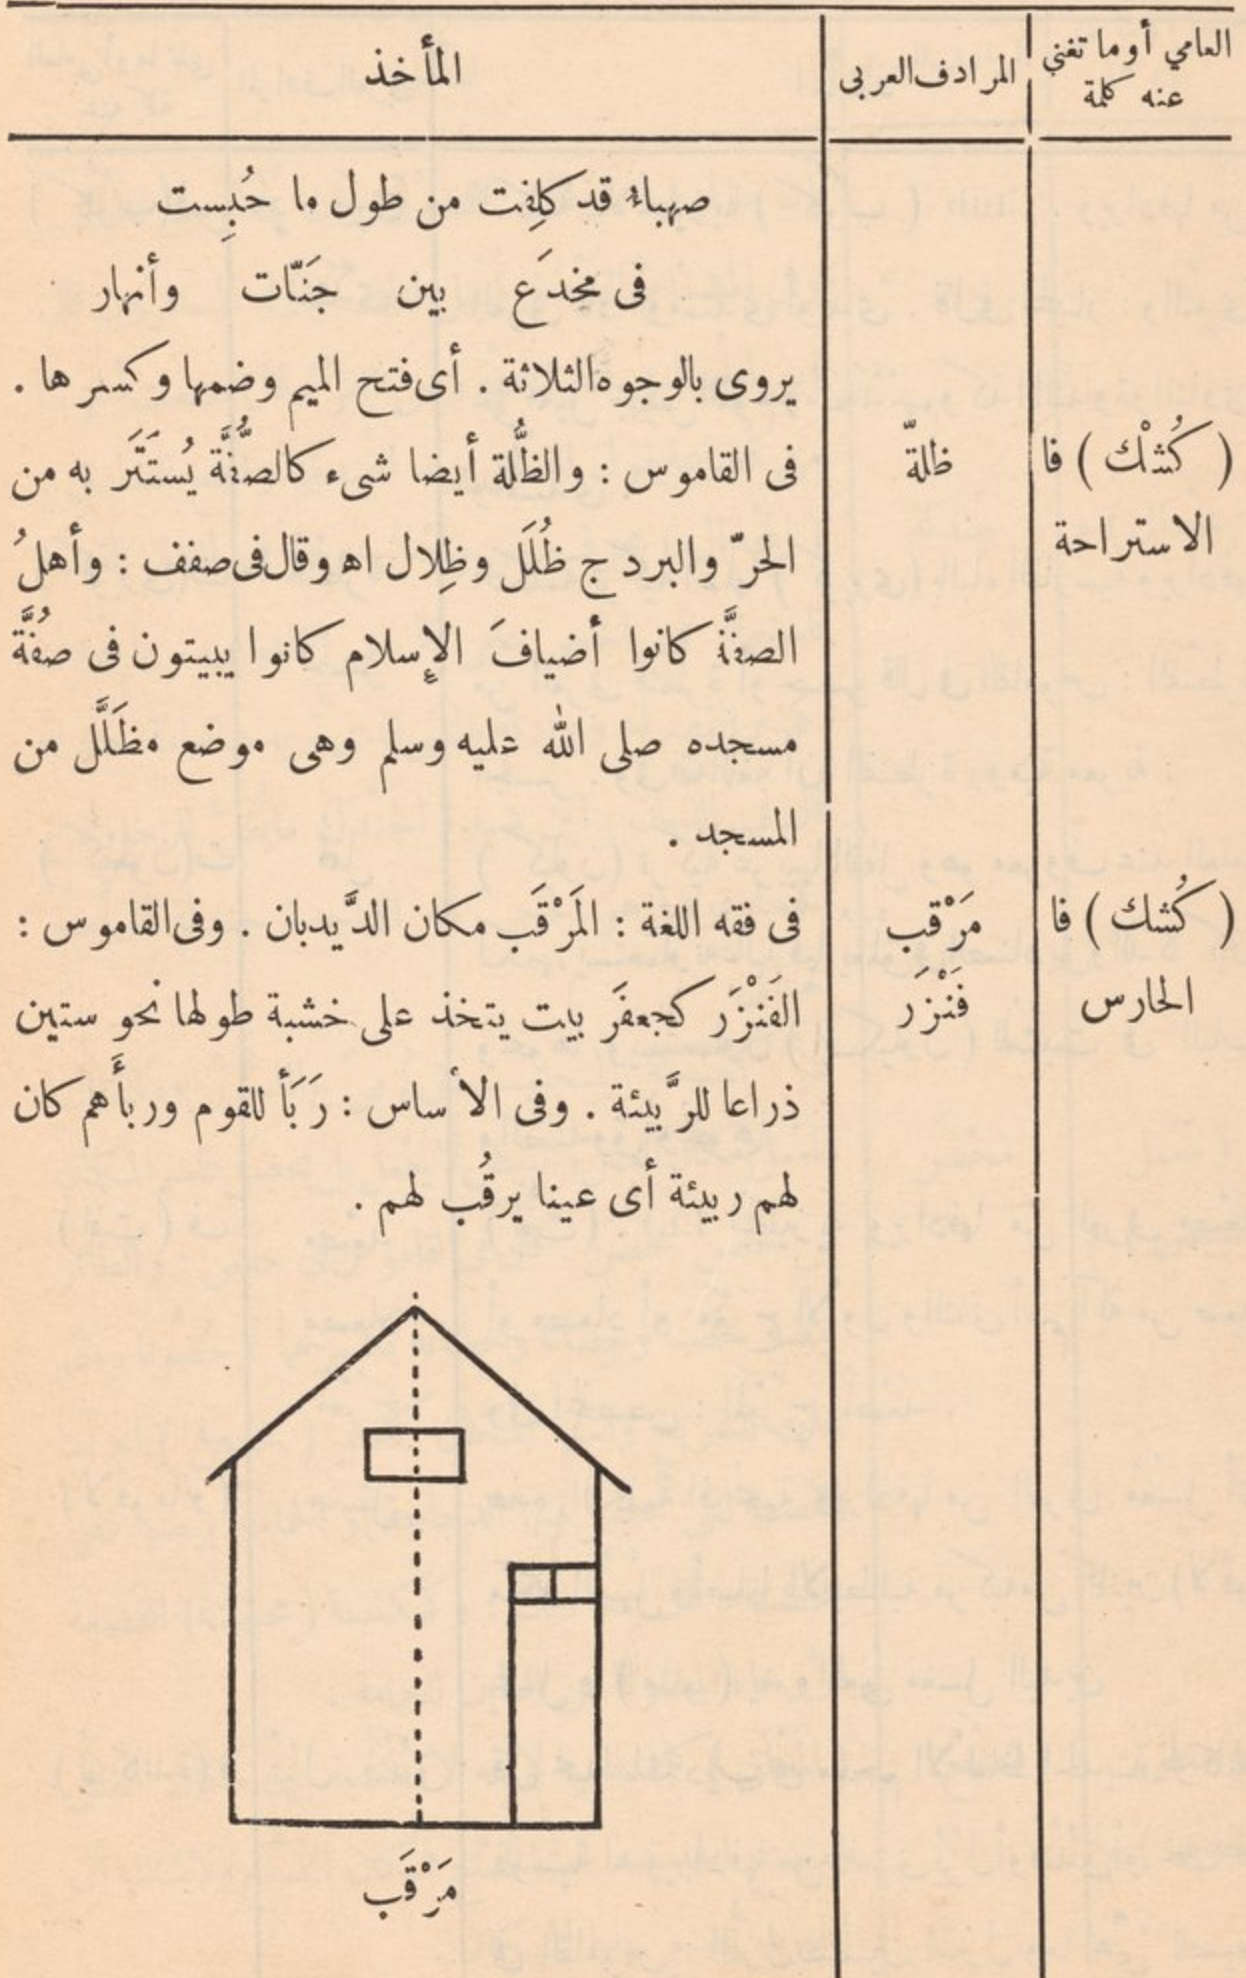 العامي أو ما تغني عنه كلمة | المرادف العربى | المأخذ
صهباءُ قد كلِفت من طول ما حُبِست
فى مخدَع بين جَنّات وأنهار
يروى بالوجوه الثلاثة . أى فتح الميم وضمها وكسرها .
( كُشْك ) فا | ظلّة | فى القاموس : والظُّلة أيضا شىء كالصُّفَّة يُستَتَر به من
الاستراحة | الحرّ والبرد ج ظُلَل وظِلال اه وقال فى صفف : وأهلُ
الصفَّة كانوا أضيافَ الإسلام كانوا يبيتون فى صُفَّة
مسجده صلى الله عليه وسلم وهى موضع مظَلَّل من
المسجد .
( كُشك ) فا | مَرْقب | فى فقه اللغة : المَرْقَب مكان الدَّيدبان . وفى القاموس :
الحارس | فَنْزَر | الفَنْزَر كجعفَر بيت يتخذ على خشبة طولها نحو ستين
ذراعا للرَّبيئة . وفى الأساس : رَبَأ للقوم وربأَهم كان
لهم ربيئة أى عينا يرقُب لهم .
مَرْقَب